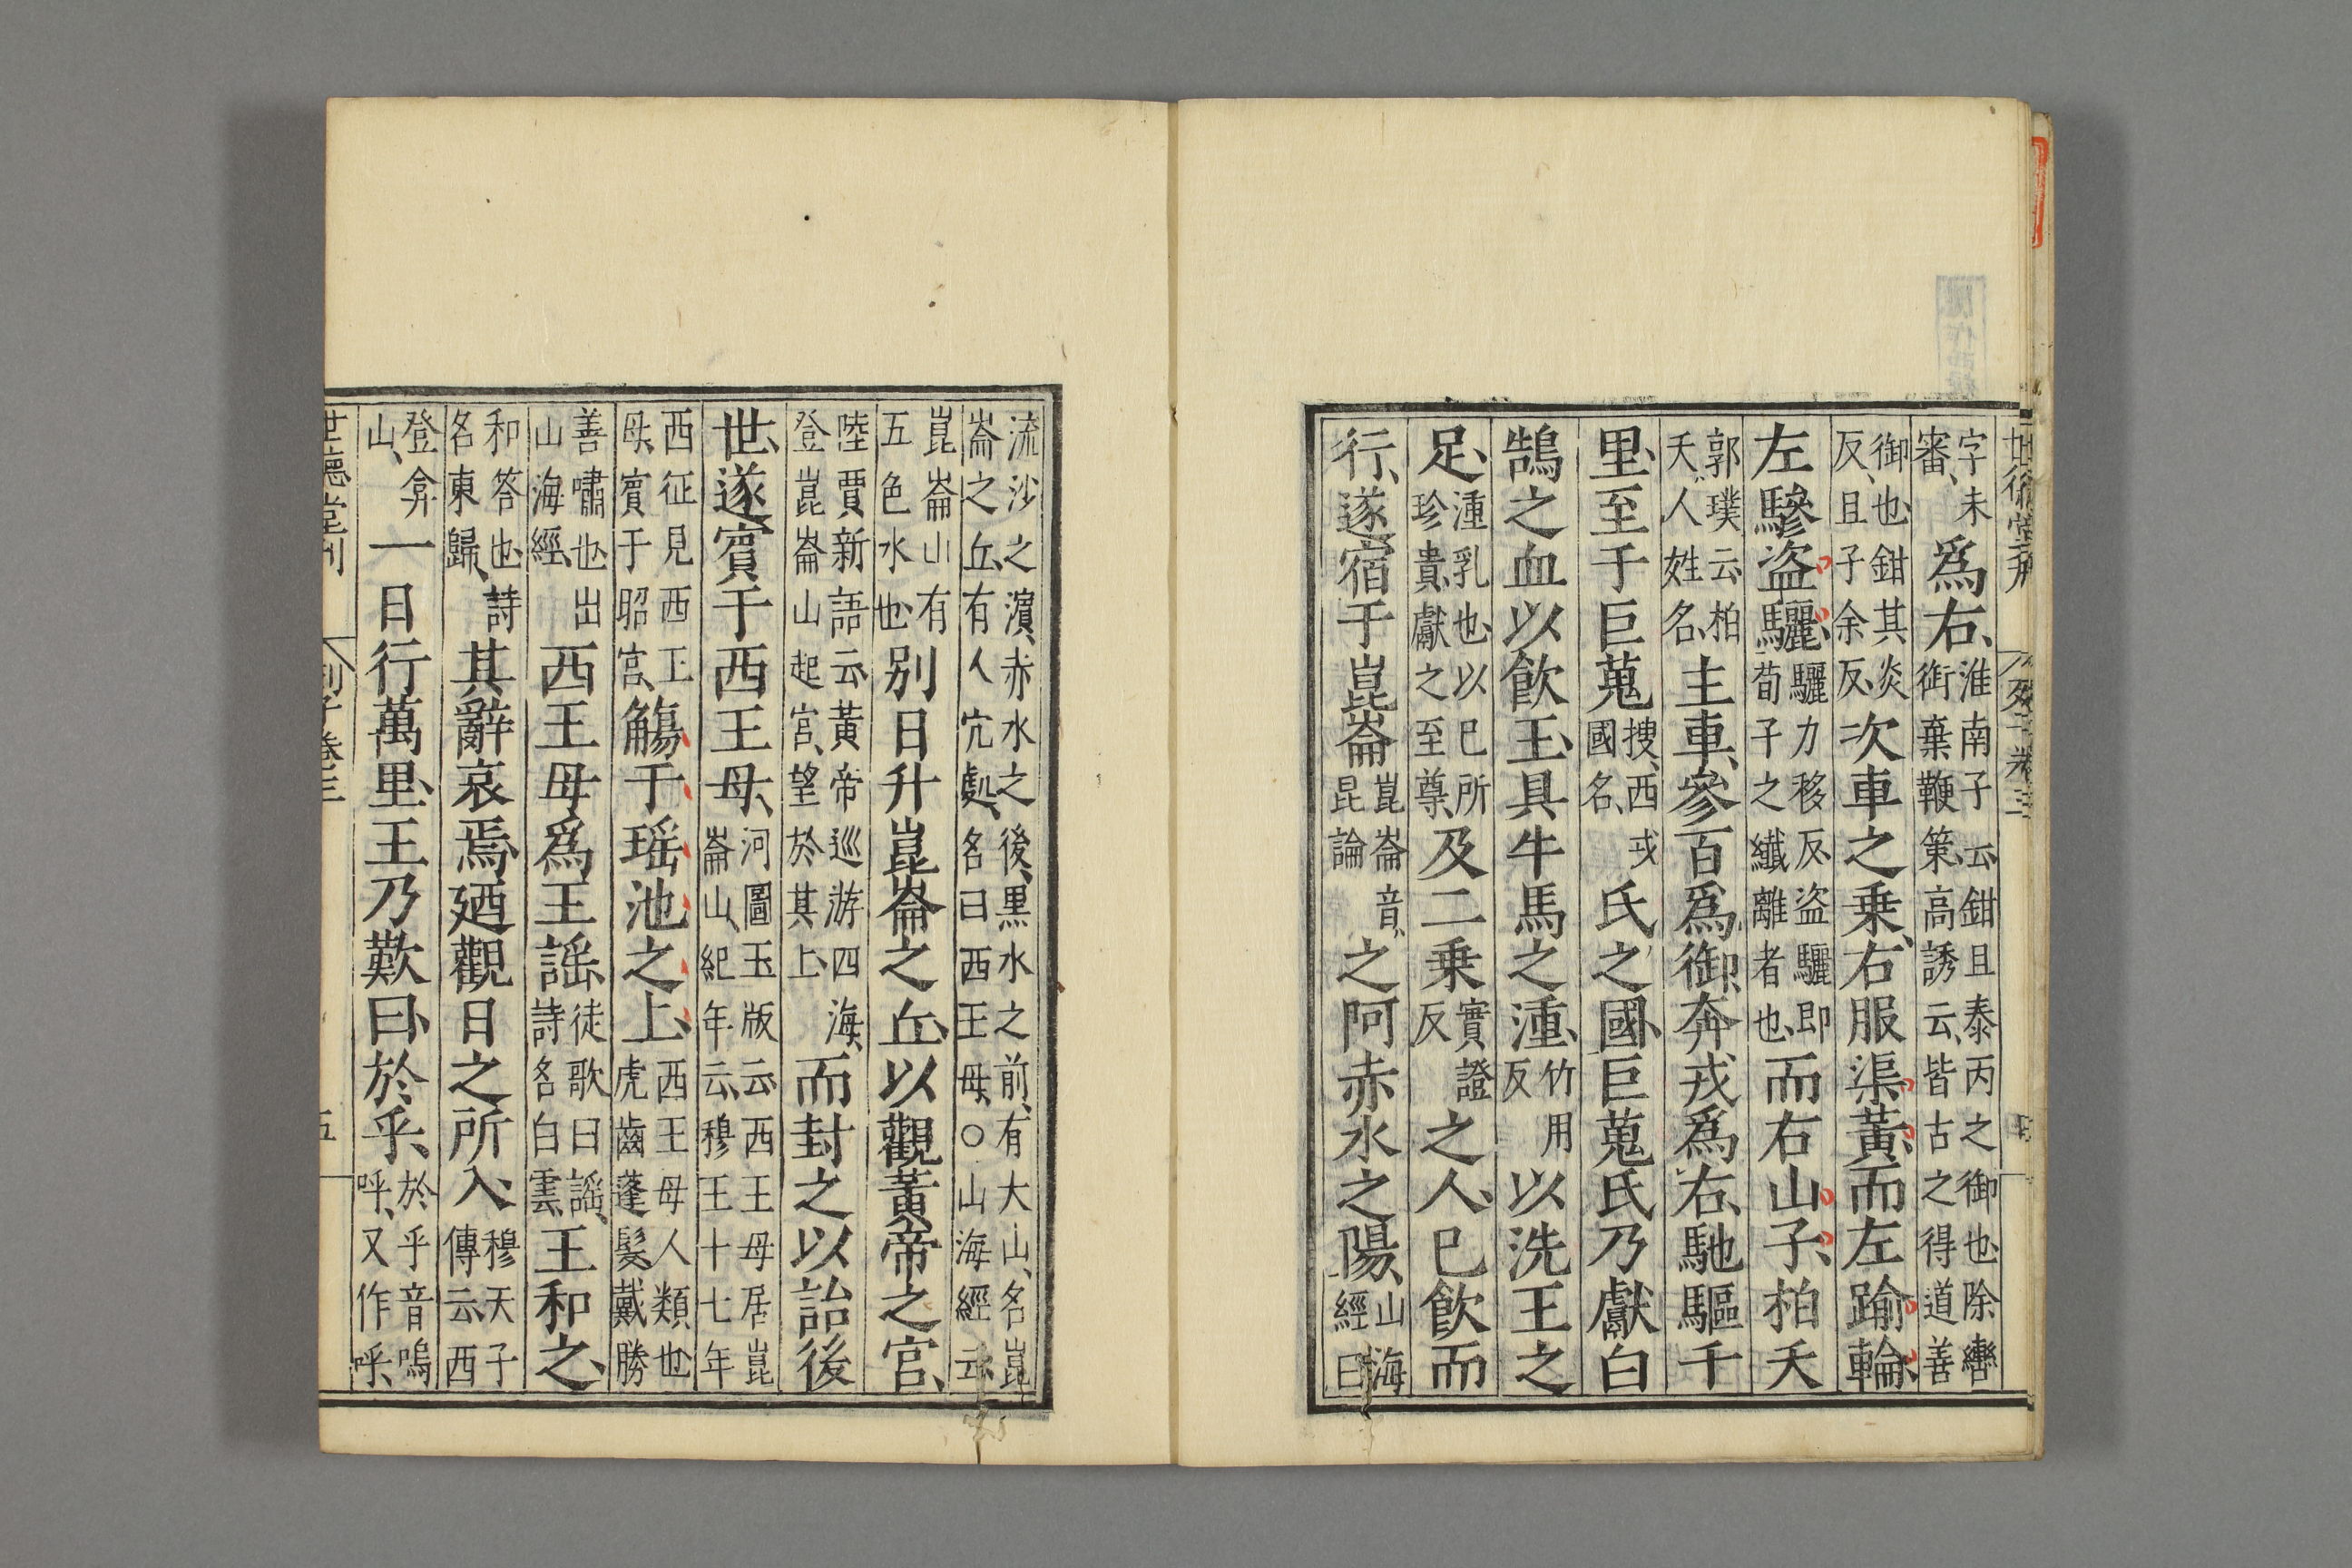 字未審爲右淮南子云鉗且泰丙之御也除轡銜棄鞭策高誘云皆古之得道善
御也鉗其炎反且子余反次車之乗右服渠黃而左踰輪
左驂盗驪驪力移反盗驪即荀子之纖離者也而右山子柏夭
郭璞云柏夭人姓名主車參百爲御奔戎爲右馳驅千
里至于巨蒐搜西戎國名氏之國巨蒐氏乃獻白
鵠之血以飲王具牛馬之湩竹用反以洗王之
足湩乳也以已所珍貴獻之至尊及二乗實證反之人已飲而
行遂宿于崑崙崑崙音昆論之阿赤水之陽山海經曰
流沙之濵赤水之後黒水之前有大山名崑崙之丘有人穴處名曰西王母〇山海經云
崑崙山有五色水也别日升崑崙之丘以觀黃帝之宫
陸賈新語云黃帝巡游四海登崑崙山起宫望於其上而封之以詒後
世遂賓于西王母河圖玉版云西王母居崑崙山紀年云穆王十七年
西征見西王母賓于昭宫觴于瑶池之上西王母人類也虎齒蓬髮戴勝
善嘯也出山海經西王母爲王謡徒歌曰謡詩名白雲王和之
和答也詩名東歸其辭哀焉廼觀日之所入穆天子傳云西
登弇山一日行萬里王乃歎曰於乎於乎音嗚呼又作呼
世德堂刊 列子卷三 五